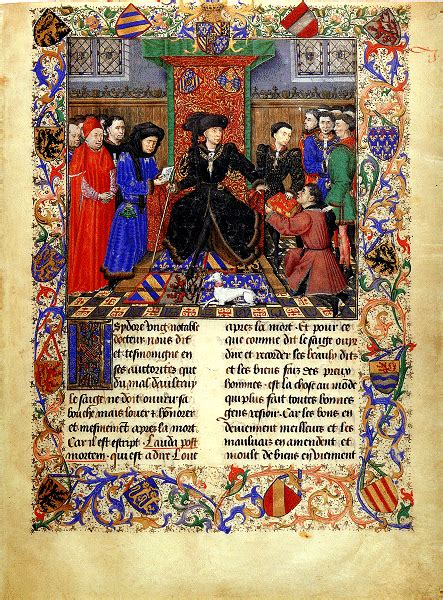 Ysydore ung notable
docteur nous dit
et tesmoingne en
ses auctoritez que
du mal d'aultruy
le saige ne doit ouvrir sa
bouche mais louer et honnorer
et mesmement apres la mort
Car il est escript Lauda post
mortem qui est a dire Loue
apres la mort Et pour ce
que comme dit le saige oyr
dire et recorder les beaulx dis
et les biens fais des preux
hommes est la chose au monde
qui plus fait toutes bonnes
gens resioir Car les bons en
deviennent meilleurs et les
maulvais en amendent et
moult de biens en viennent